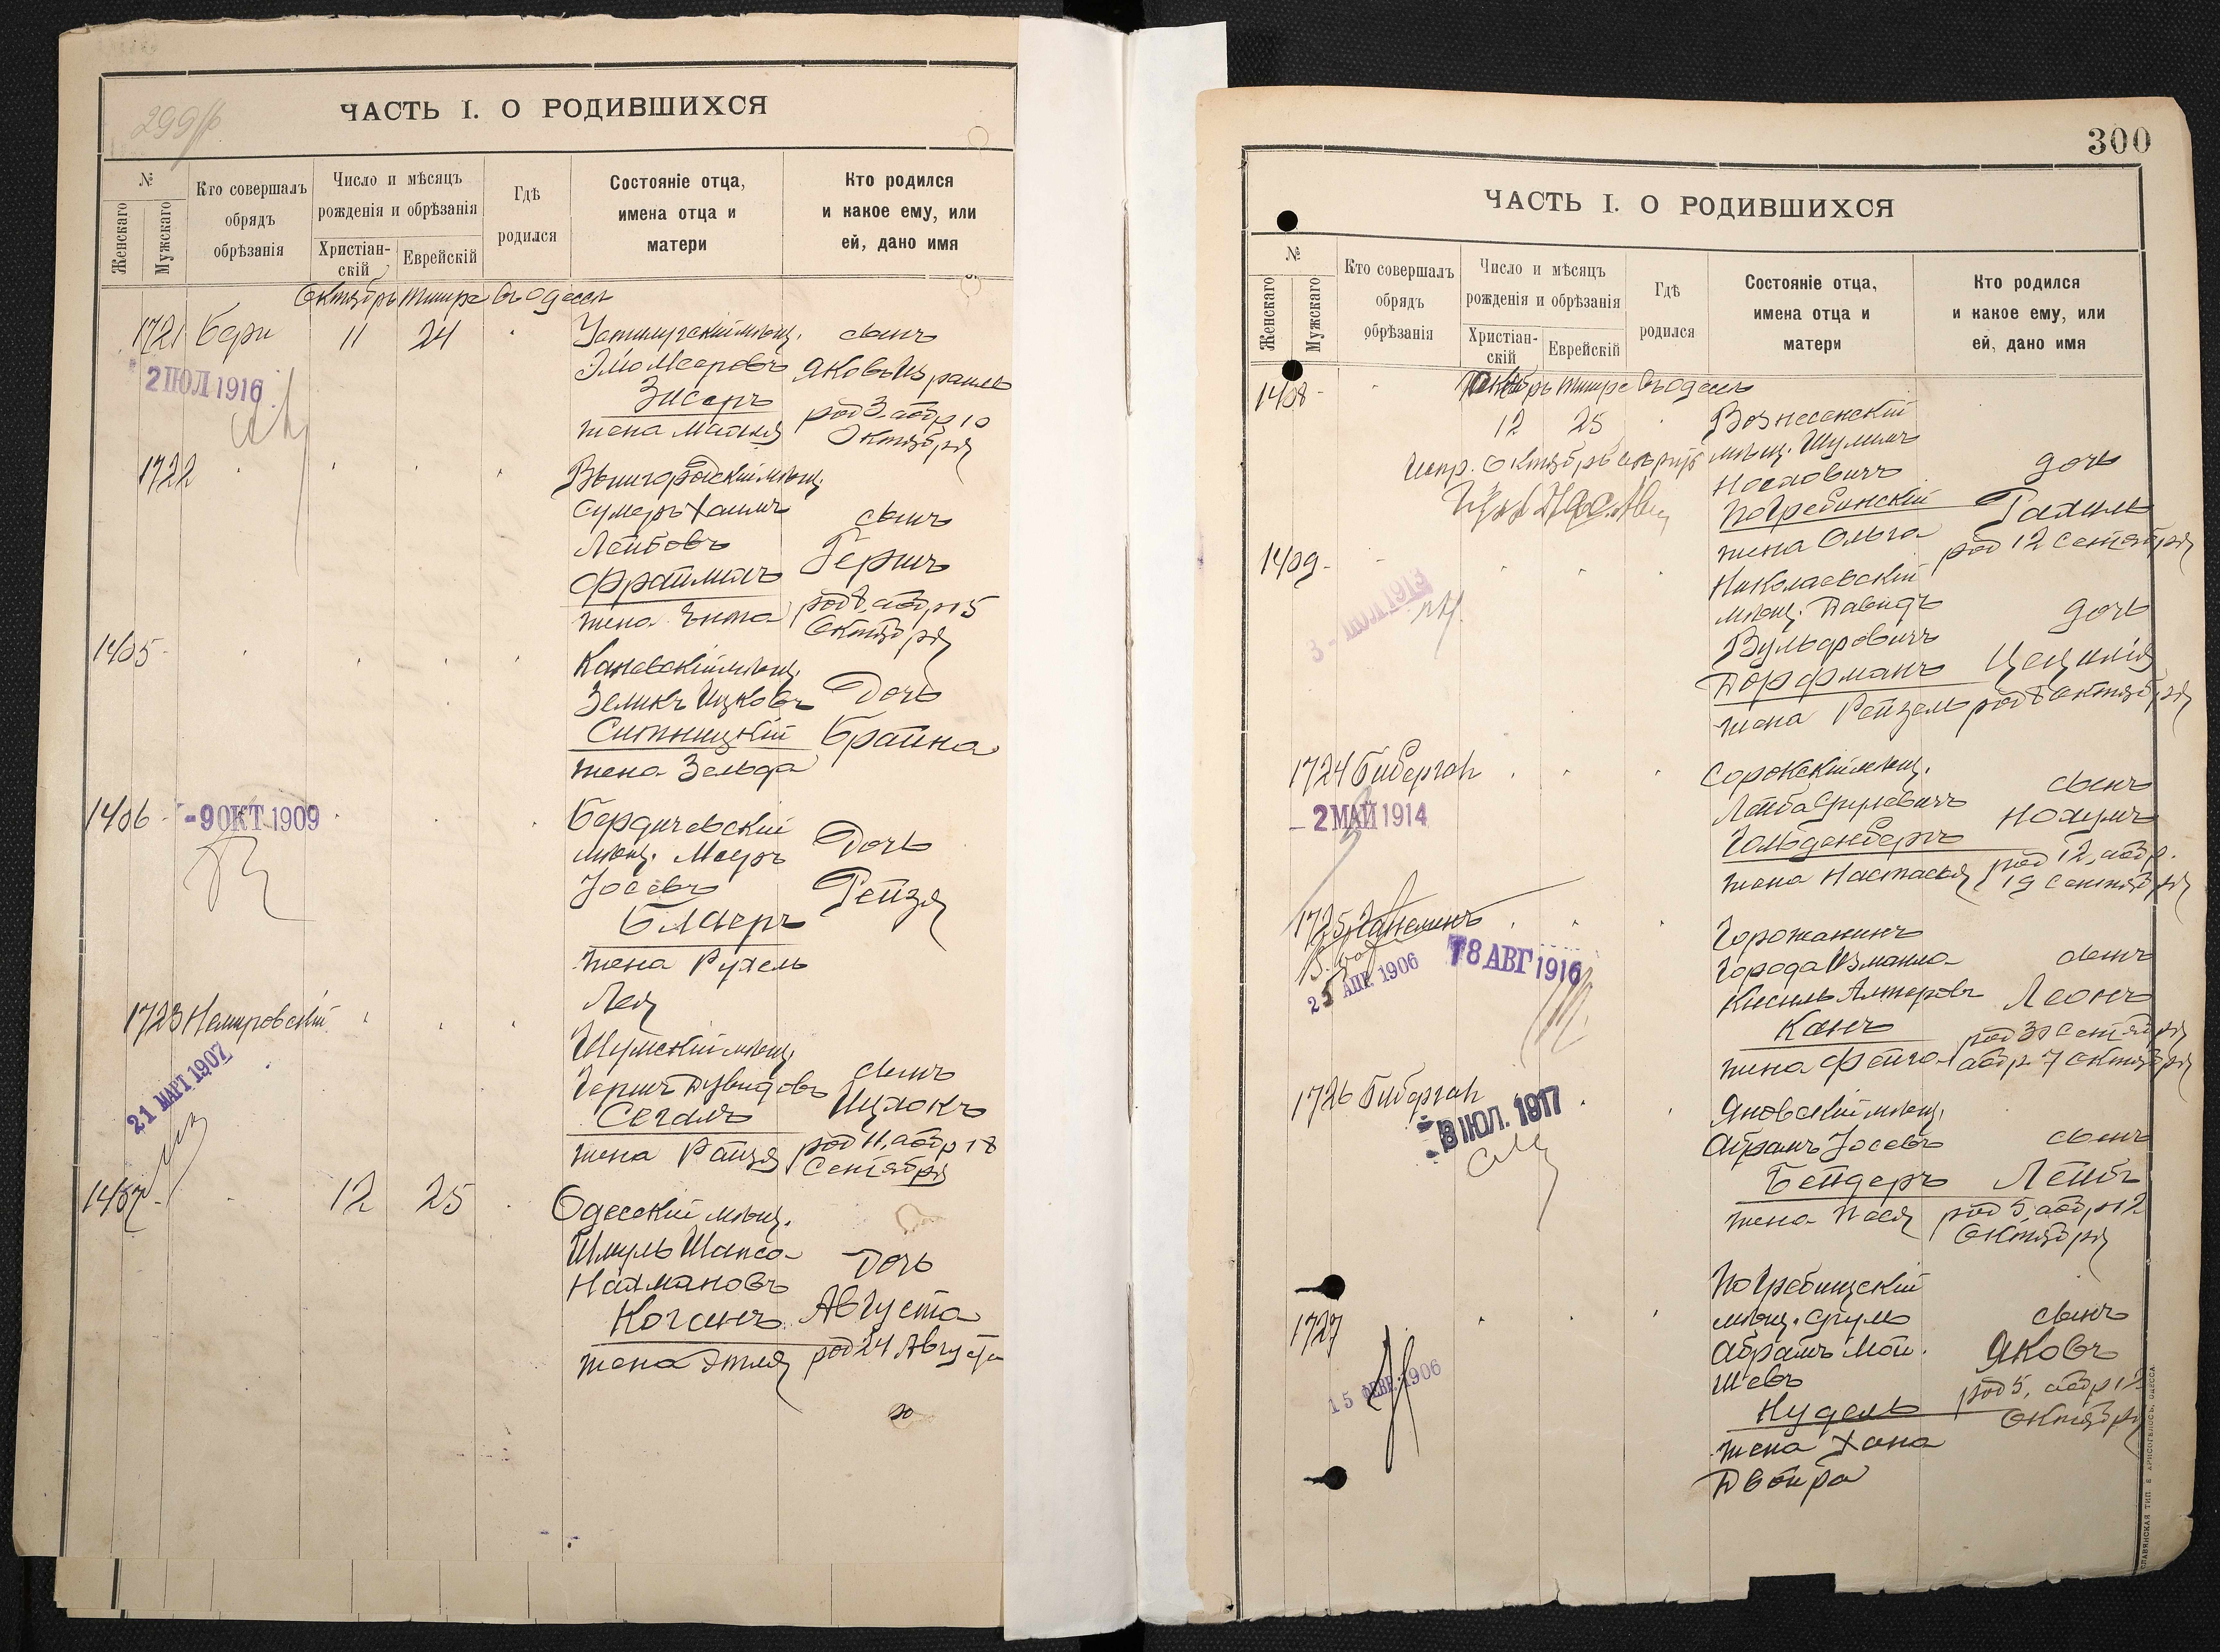 299
ЧАСТЬ I. О РОДИВШИХСЯ
№
Женскаго
Мужскаго
Кто совершалъ
обрядъ
обрѣзанія
Число и мѣсяцъ
рожденія и обрѣзанія
Христіан-
скій
Еврейскій
Гдѣ
родился
Состояніе отца,
имена отца и
матери
Кто родился
и какое ему, или
ей, дано имя
Октябрь тишре въ Одессѣ
1721 Бери 11 24
2 ІЮЛ 1916
мѣщ.
Мееровъ
Зисеръ
жена
сынъ
Яковъ Израиль
род 3, аобр 10
Октября
1722
мѣщ.
Сумеръ Хаимъ
Лейбовъ
Фраиманъ
жена Ента
сынъ
Гершъ
род 8, аобр 15
Октября
1405
Каневскій мѣщ.
Зеликъ Ицковъ
Ситницкій
жена Зельда
Дочь
Браина
1406 - 9 ОКТ 1909
Бердичевскій
мѣщ. Мееръ
Іосевъ
жена Рухель
Лея
Дочь
Рейзя
1723 Немировскій
21 МАРТ 1907
Шумскій мѣщ.
Гершъ Дувидовъ
Сегалъ
жена
сынъ
Ицхокъ
род 11, аобр 18
Сентября
1407 12 25
Одесскій мѣщ.
Шмуль Шапса
Нахмановъ
Когенъ
жена Этля
Дочь
Августа
род 24 Августа
300
ЧАСТЬ I. О РОДИВШИХСЯ
№
Женскаго
Мужскаго
Кто совершалъ
обрядъ
обрѣзанія
Число и мѣсяцъ
рожденія и обрѣзанія
Христіан-
скій
Еврейскій
Гдѣ
родился
Состояніе отца,
имена отца и
матери
Кто родился
и какое ему, или
ей, дано имя
Октябрь тишре въ Одессѣ
1408 12 25
Вознесенскій
мѣщ. Шулимъ
Носиовичъ
Погребинскій
жена Ольга
дочь
Рахиль
род 12 Сентября
Испр. Октябрь
1409
3 - ІЮЛ 1913
Николаевскій
мѣщ. Давидъ
Вульфовичъ
Дорфманъ
жена Рейзель
дочь
Цецилія
род 8 Октября
1724
2 МАЙ 1914
Сорокскій мѣщ.
Лейба Срулевичъ
Гольденбергъ
жена Настасья
сынъ
Нохумъ
род 12, аобр.
19 Сентября
1725
25 АПР. 1906
18 АВГ 1916
Горожанинъ
города Измаила
Кисиль Алтеровъ
Канъ
жена Фейга
сынъ
Леонъ
род 30 Сентября
аобр 7 Октября
1726
8 ІЮЛ. 1917
Яновскій мѣщ.
Абрамъ Іосевъ
Бендеръ
жена Пася
сынъ
Лейбъ
род 5, аобр 12
Октября
1727
15 ФЕВР. 1906
Погребищскій
мѣщ. Сруль
Абрамъ Мой-
шевъ
Нудель
жена Хана
Двойра
сынъ
Яковъ
род 5, аобр 12
Октября
СЛАВЯНСКАЯ ТИП. Е. ХРИСОГЕЛОСЪ, ОДЕССА